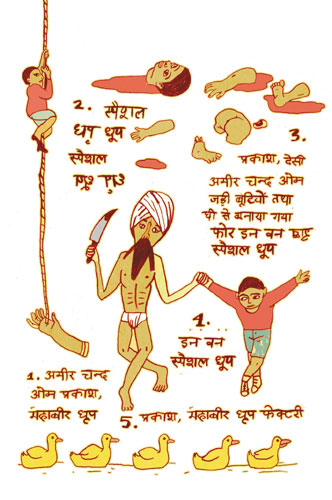 2. स्पैशल
धूप
स्पैसल
3.
प्रकाश, देसी
अमीर चन्द ओम
जड़ी बूटियों तथा
घी से बनाया गया
फोर इन बन
स्पैसल धूप
4.
इन बन
स्पैसल धूप
1. अमीर चन्द
ओम प्रकाश,
महाबीर धूप
5. प्रकाश, महाबीर धूप फेक्टरी